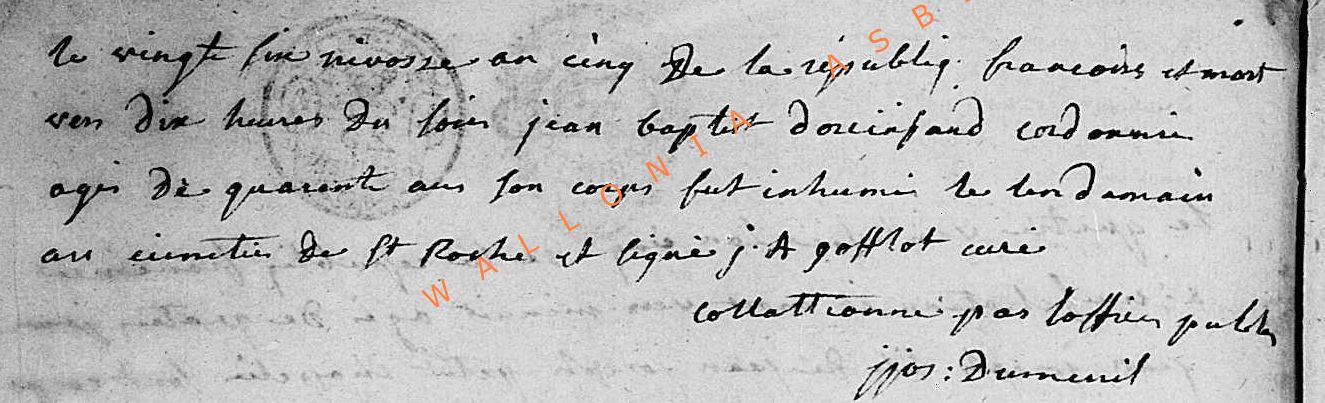 le vingte six nivosse an cinq De la république françoise est mort
vers dix heures Du soir jean baptist cordonnie
agé De quarente ans son corps fut inhumé le lendemain
au cimetie De St Roche et signé j. A gofflot curé
collattionné par lofficier public
jjos: Dumenil
WALLONIA ASB